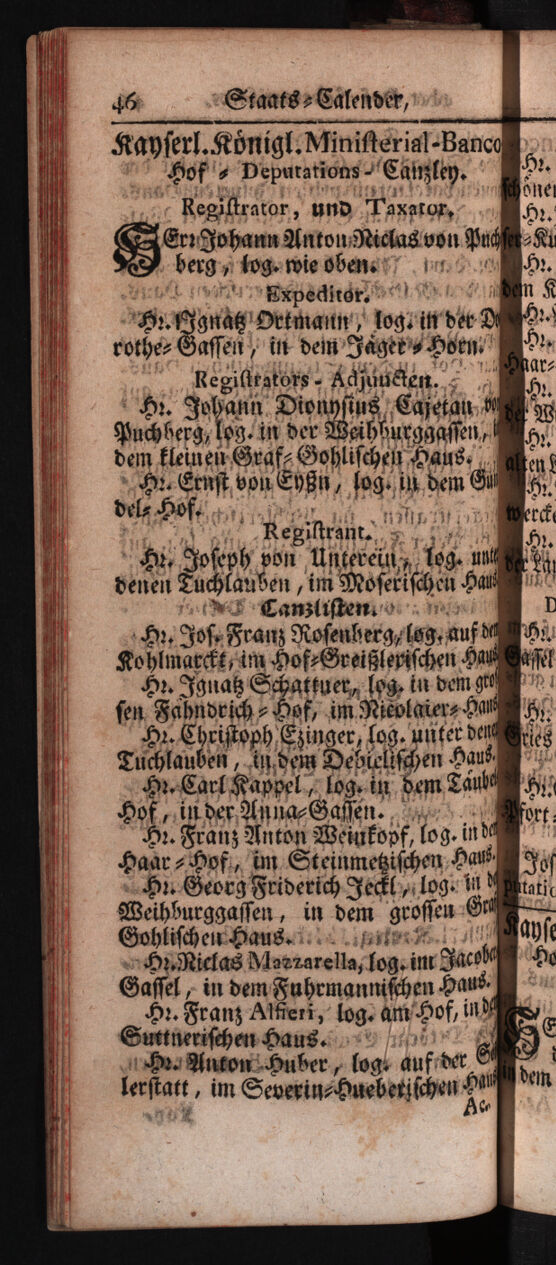 46 Staats-Calender,
Kayserl. Königl. Ministerial-Banco
Hof-Deputations-Canzley.
Registrator, und Taxator.
HErr Johann Anton Niclas von Puch
berg, log. wie oben.
Expeditor.
Hr. Ignatz Ortmann, log. in der Do
rothe-Gassen, in dem Jäger-Horn.
Registrators-Adjuncten.
Hr. Johann Dionysius Cajetan
Puchberg, log. in der Weihburggassen,
dem kleinen Graf-Gohlischen Haus.
Hr. Ernst von Eyßn, log. in dem Gun
del-Hof.
Registrant.
Hr. Joseph von Unterein, log. unte
denen Tuchlauben, im Moserischen Haus
Canzlisten.
Hr. Jos. Franz Rosenberg, log. auf den
Kohlmarckt, im Hof-Greißlerischen Haus
Hr. Ignatz Schattner, log. in dem gros
sen Fähndrich-Hof, im Nicolaier-Haus
Hr. Christoph Ezinger, log. unter denen
Tuchlauben, in dem Debielischen Haus.
Hr. Carl Kappel, log. in dem Täubel
Hof, in der Anna-Gassen.
Hr. Franz Anton Weinkopf, log. in den
Haar-Hof, im Steinmetzischen Haus.
Hr. Georg Friderich Jeckl, log. in
Weihburggassen, in dem grossen Graf
Gohlischen Haus.
Hr. Niclas Mazzarella, log. im Jacober
Gassel, in dem Fuhrmannischen Haus.
Hr. Franz Alfieri, log. am Hof, in de
Suttnerischen Haus.
Hr. Anton Huber, log. auf der Sai
lerstatt, im Severin-Hueberischen Haus
Ac-